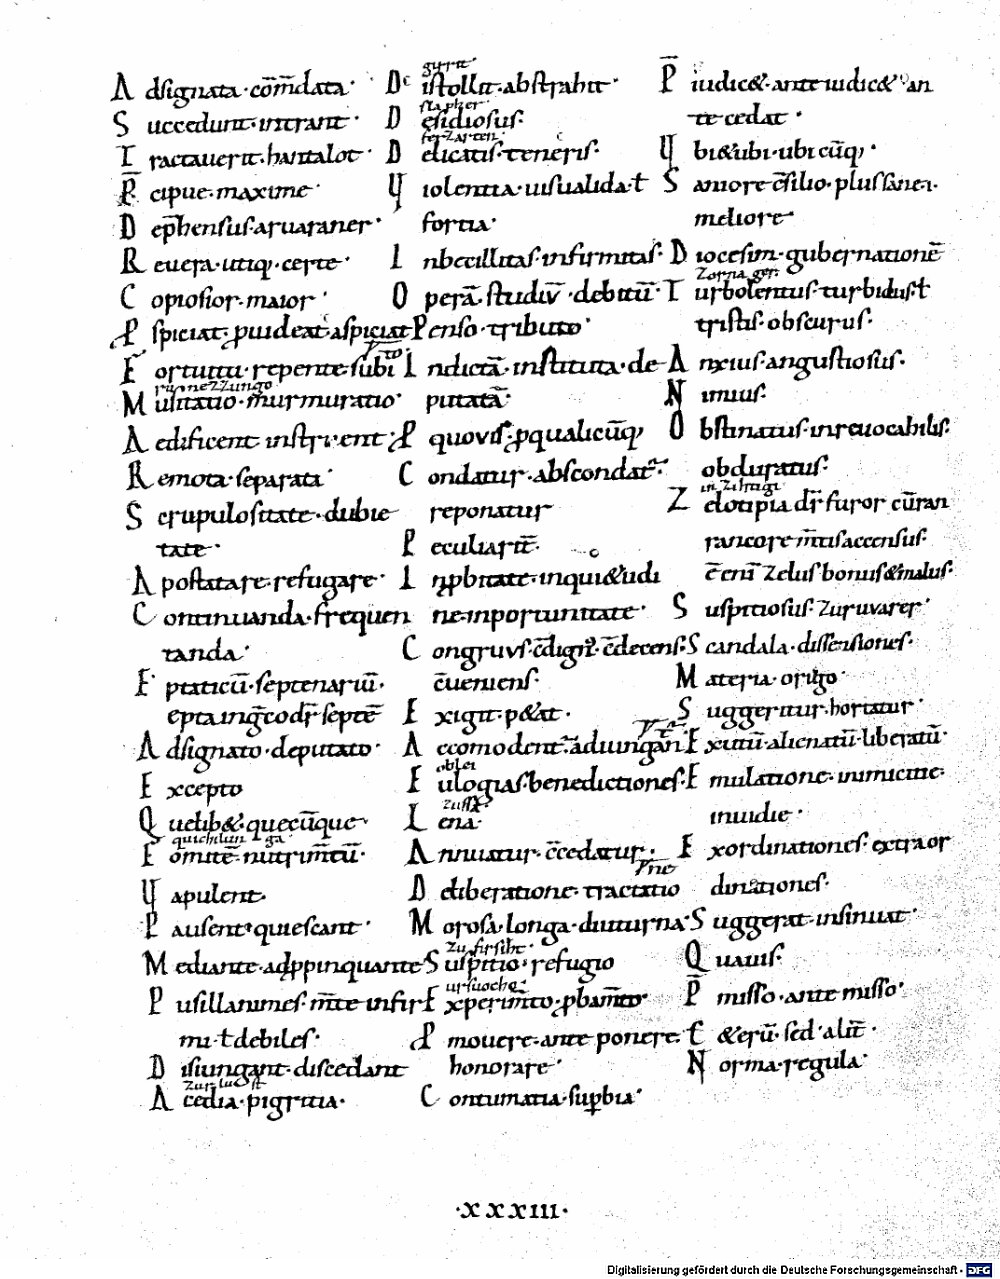 Adsignata. cōm̄data.
Succedunt. intrant.
Tractauerit. hantalot.
P̄cipue. maxime.
Dep̄hensus. aruaraner.
Reuera. utiq. certe.
Copiosior. maior.
Pspiciat. puideat. aspiciat
Fortuitu. repente. subito
runezzungo
Musitatio. murmuratio.
Aedificent. instruent.
Remota. separata.
Scrupulositate. dubie
tate.
Apostatare. refugare.
Continuanda. frequen
tanda.
Eptaticū. septenariū.
epta ingc̄o dr̄ septē
Adsignato. deputato.
Excepto
Quelib&. quecūque
quichilun ga
Fomite. nutrim̄tū.
Vapulent.
Pausent. quiescant.
Mediante. adppinquante
Pusillanimes. m̄te infir
mi. ł debiles.
Disiungant. discedant
Zurlust
Accedia. pigritia.
gurit
Distollit. abstrahit.
slapher
Desidiosus.
fer zarten
Delicatis. teneris.
Violentia. uisualida. ł
fortia.
Inbecillitas. infirmitas.
Operā. studiū. debitū.
Penso. tributo.
Indictā. instituta. de
putatā.
P quouis. p qualicūq
Condatur. abscondatur
reponatur
Peculiarit̄.
Inpbitate. inqui&udi
ne. inportunitate.
Congruus. c̄dign̄. c̄decens.
c̄ueniens.
Exigit. p&at.
Accomodent. adiungant
oblei
Eulogias. benedictiones.
Lena.
Annuatur. c̄cedatur.
Deliberatione. tractatione
Morosa. longa. diuturna.
Zu firsiht
Suspitio. refugio
ursuoche
Experim̄to. pbam̄to.
Pmouere. ante ponere.
honorare.
Contumatia. supbia.
P̄iudic&. ante iudic&. an
te cedat.
Vbi&ubi. ubicūq.
Saniore c̄silio. plus sane
meliore
Diocesim. gubernationē
Zorna ger
Turbolentus. turbidus. ł
tristis. obscurus.
Anxius. angustiosus.
Nimius.
Obstinatus. inreuocabilis.
obduratus.
Zelotipia dr̄ furor cū ran
rancore m̄tis accensus.
c̄ eni Zelus bonus & malus.
Suspitiosus. Zuruvarer.
Scandala. dissensiones.
Materia. origo.
Suggeritur. hortatur.
Exutū. alienatū. liberatū.
Emulatione. inimicitie.
inuidie.
Exordinationes. extraor
dinationes.
Suggerat. insinuat.
Quauis.
P̄misso. ante misso.
C&erū. sed. alit̄.
Norma. regula.
.xxxiii.
Digitalisierung gefördert durch die Deutsche Forschungsgemeinschaft - DFG